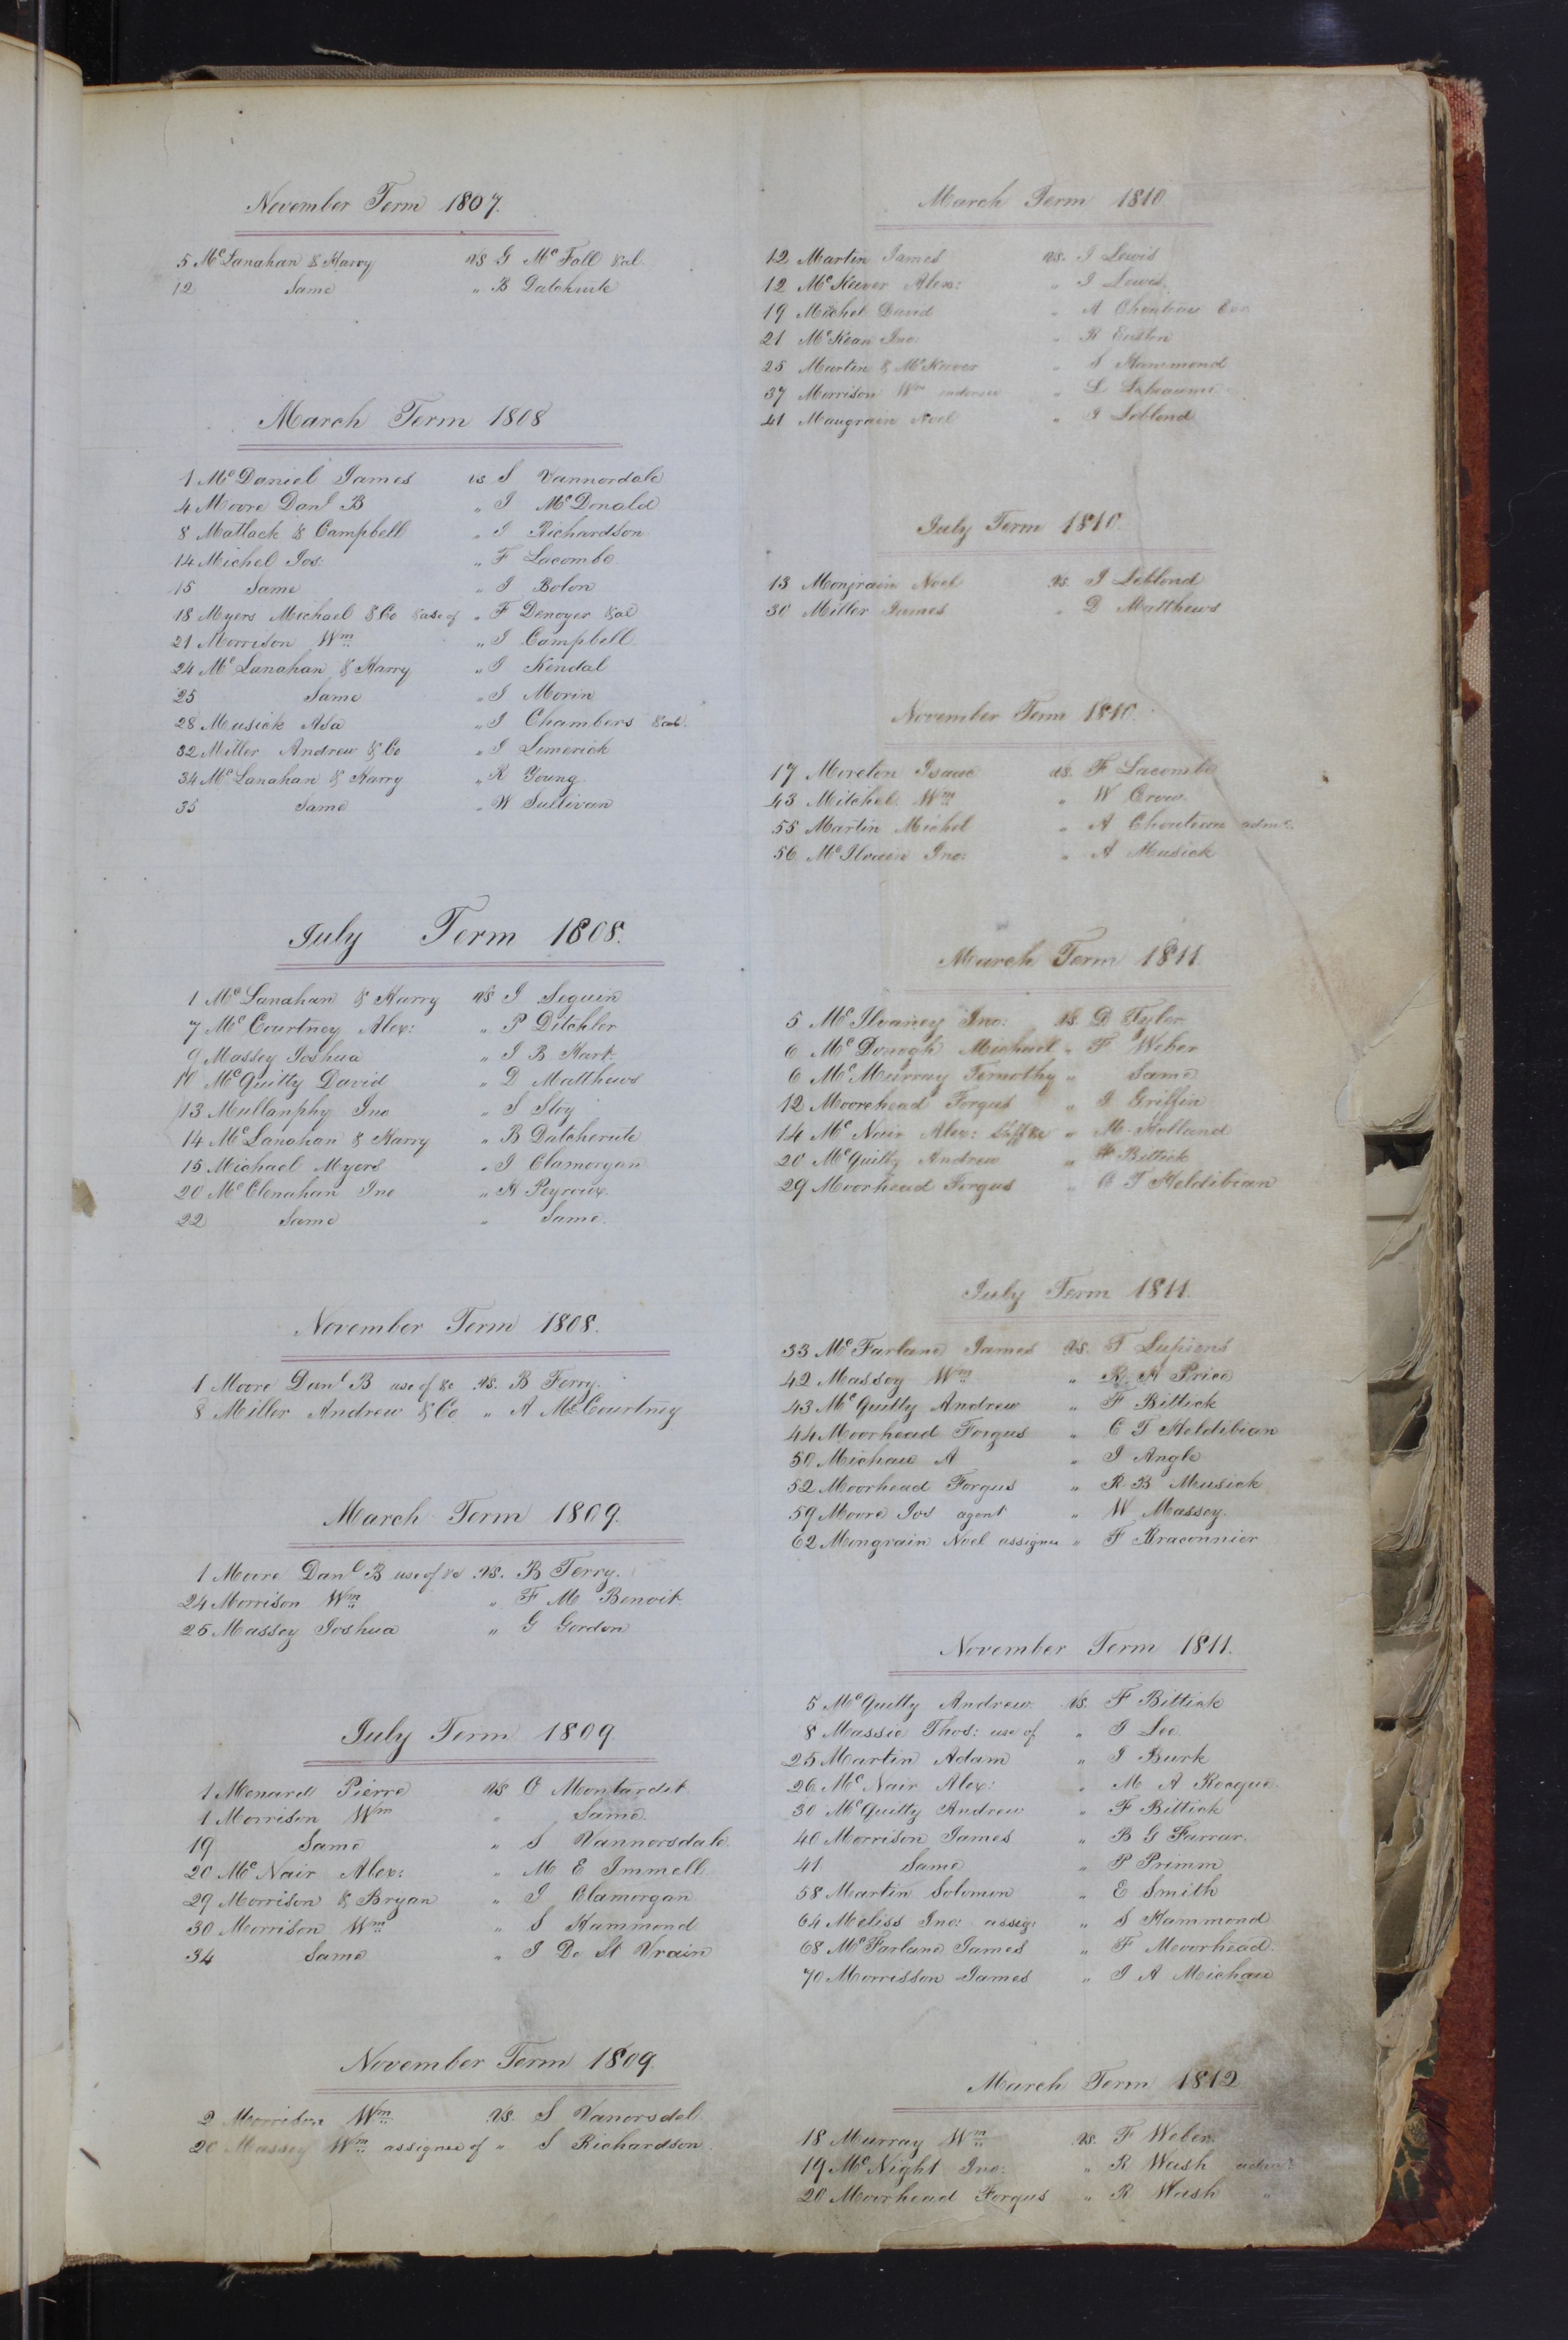 November Term 1807.
5 McLanahan & Harry vs G McFall &al.
12 Same " B Datcherute
March Term 1808
1 McDaniel James vs S Vannordale
4 Moore Danl B " J McDonald
8 Matlack & Campbell " J Richardson
14 Michel Jos: " F Lacombe
15 Same " J Bolon
18 Myers Michael & Co &use of " F Denoyer &al
21 Morrison Wm " J Campbell
24 McLanahan & Harry " J Kendal
25 Same " J Morin
28 Musick Asa " J Chambers &al.
32 Miller Andrew & Co " J Limerick
34 McLanahan & Harry " R Young.
35 Same " W Sullivan
July Term 1808.
1 McLanahan & Harry vs J Seguin
7 McCourtney Alex: " P Ditchler
9 Massey Joshua " J B Hart.
10 McQuitty David " D Matthews
13 Mullanphy Jno " S Stoy
14 McLanahan & Harry " B Datcherute
15 Michael Myers " J Clamorgan
20 McClenahan Jno " H Peyroux
22 Same " Same.
November Term 1808.
1 Moore Danl B use of &c vs. B Terry.
8 Miller Andrew & Co " A McCourtney
March Term 1809.
1 Moore Danl B use of &c vs. B Terry.
24 Morrison Wm " F M Benoit.
25 Massey Joshua " G Gordon
July Term 1809.
1 Menard Pierre vs O Montardit
1 Morrison Wm " Same.
19 Same " S Vannorsdale.
20 McNair Alex: " M E Immell
29 Morrison & Bryan " J Clamorgan
30 Morrison Wm " S Hammond
34 Same " J De St Vrain
November Term 1809.
2 Morrison Wm vs. S Vanorsdel.
20 Massey Wm assignee of " S Richardson.
March Term 1810.
12 Martin James vs. J Lewis
12 McKeever Alex: " J Lewis.
19 Michel David " A Chouteau Exr
21 McKean Jno: " R Easton
25 Martin & McKeever " S Hammond
37 Morrison Wm endorsee " L
41 Maugrain Noel " J Leblond
July Term 1810.
13 Mongrain Noel vs. J Leblond
30 Miller James " D Matthews
November Term 1810.
17 Moreton Isaac vs. F Lacombe
43 Mitchel Wm " W Crow.
55 Martin Michel " A Chouteau admr.
56 McIlvain Jno: " A Musick
March Term 1811.
5 McIlvaney Jno: vs. D Tyler
6 McDonogh Michael " F Weber
6 McMurray Temothy " Same
12 Moorehead Forgus " J Griffin
14 McNair Alex: Shff &c " M. Holland
20 McQuitty Andrew " F Bittick
29 Moorhead Forgus " C T Heldibian
July Term 1811.
33 McFarland James vs. T Lupions
42 Massey Wm " R. H Price
43 McQuitty Andrew " F Bittick
44 Moorhead Forgus " C T Heldibian
50 Michau A " J Angle
52 Moorhead Forgus " R B Musick
59 Moore Jos agent " W Massey.
62 Mongrain Noel assignee " F Braconnier
November Term 1811.
5 McQuitty Andrew. vs. F Bittick
8 Massie Thos: use of " J Lee.
25 Martin Adam " J Burk
26 McNair Alex: " M A Rocque.
30 McQuitty Andrew " F Bittick
40 Morrison James " B G Farrar.
41 Same " P Primm
58 Martin Solomon " E Smith
64 Meliss Jno: assig: " S Hammond
68 McFarland James " F Moorhead.
70 Morrisson James " J A Michau
March Term 1812
18 Murray Wm vs. F Weber.
19 McNight Jno: " R Wash admr.
20 Moorhead Forgus " R Wash "